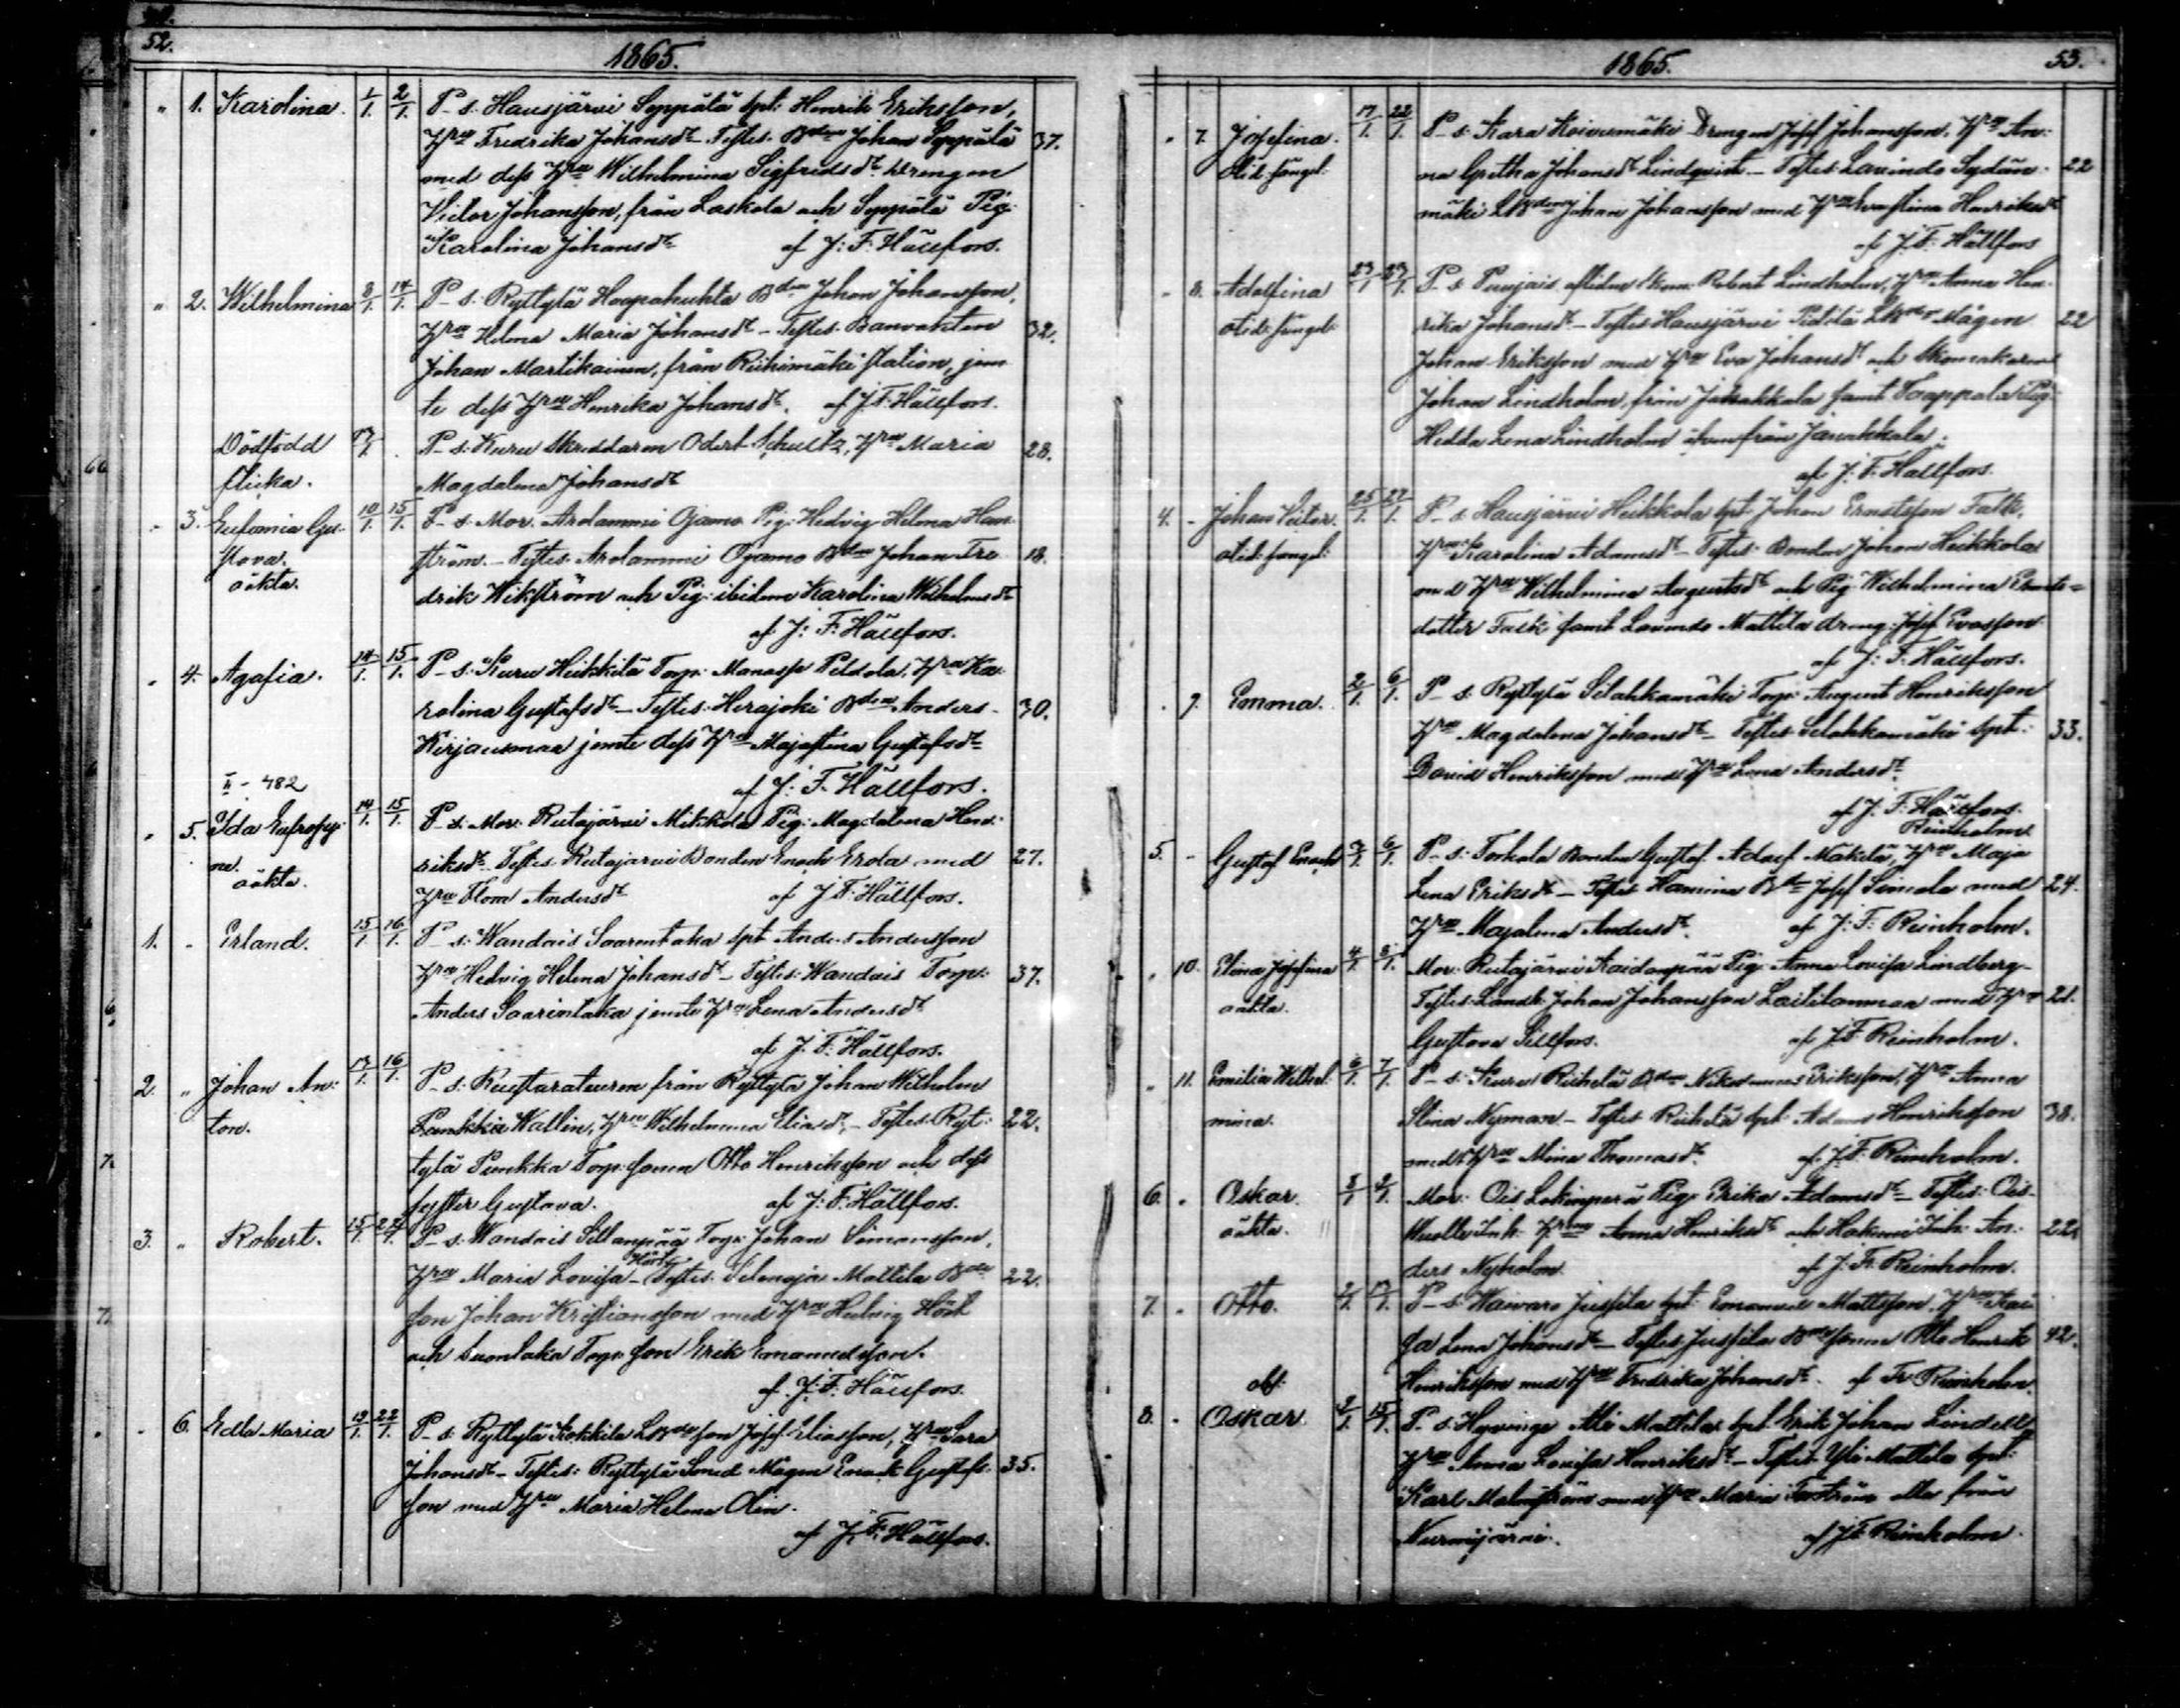 52.
1865.
" 1. Karolina. 1/1. 2/1. P_s. Hausjärvi Seppälä Spt: Henrik Eriksson,
Hru Fredrika Johansdr Testes. Bden Johan Seppälä 37.
med dess Hru Wilhelmina Sigfredsdr drengen
Victor Johansson, från Laskola och Seppälä Pig:
Karolina Johansdr af J: F: Hällfors.
" 2. Wilhelmina 8/1. 14/1. P_s. Ryttylä Haapahuhta Bden Johan Johansson,
Hru Helena Maria Johansdr_ Testes. Banvakten 32.
Johan Martikainen, från Riihimäki station, jem
te dess Hru Henrika Johansdr. af J. F. Hällfors.
Dödfödd P_s: Kuru Skreddaren Odert Schultz, Hru Maria 28.
flicka. Magdalena Johansdr
" 3. Eufemia Gus- 10/1. 15/1. P_s. Mor. Arolammi Ojamo Pig: Hedvig Helena Ham
tova. ström._ Testes. Arolammi Ojamo Bden Johan Fre 18.
oäkta. drik Wikström och Pig: ibidem Karolina Wilhelmsdr
af J: F. Hällfors.
" 4. Agafia. 14/1. 15/1. P_s. Kuru Heikkilä Torp: Manasse Peldola, Hru Ka-
rolina Gustafsdr_ Testes. Herajoki Bden Anders 30.
Kirjausmaa jemte dess Hru Majastina Gustafsdr
II - 482 af J: F. Hällfors.
" 5. Ida Eufrosy- 14/1. 15/1. P_s. Mor. Rutajärvi Mikkola Pig: Magdalena Hen-
ne. riksdr Testes. Rutajärvi Bonden Enoch Erola med 27.
oäkta. Hru Flora Andersdr af J. F. Hällfors.
1. " Erland. 15/1 16/1. P_s. Wandais Saarentaka Spt Anders Andersson
Hru Hedvig Helena Johansdr_ Testes. Wandais Torp: 37.
Anders Saarentaka jemte Hru Lena Andersdr
af J. F. Hällfors.
2. " Johan An- 13/1. 16/1. P_s. Restaurateuren från Ryttylä Johan Wilhelm
ton. Punkka Wallin, Hru Wilhelmina Eliasdr_ Testes. Ryt- 22.
tylä Punkka Torp: sonen Otto Henriksson och dess
syster Gustava. af J. F. Hällfors.
3. " Robert. 15/1 22/1. P_s. Wandais Sillanpää Torp: Johan Simonsson,
Hörk
Hru Maria Lovisa _ Testes. Selenoja Mattila Bde 22.
son Johan Kristiansson med Hru Hedvig Hörk
och Suontaka Torp: son Erik Emanuelsson.
af J. F. Hällfors.
" 6. Edla Maria 19/1. 22/1. P_s. Ryttylä Kokkila LBde son Josef Eliasson, Hru Sara
Johansdr_ Testes: Ryttylä Smed Mågen Enoch Gustafs- 35.
son med Hru Maria Helena Olin.
af J. F. Hällfors.
1865. 53.
" 7. Josefina. 17/1. 22/1. P_s. Kara Koivumäki Drengen Josef Johansson, Hru An-
na Gretha Johansdr Lindqvist_ Testes. Lavinto Sydän- 22
mäki LBden Johan Johansson med Hru Evastina Henriksdr
af J. F. Hällfors
" 8. Adolfina 23/1. P_s. Punjais aflidne Skom: Robert Lindholm, Hru Anna Hen
rika Johansdr_ Testes Hausjärvi Mågen 22
Johan Eriksson med Hru Eva Johansdr och Skomakaren
Johan Lindholm, från Janakkala samt Pig:
Hedda Lena Lindholm från Janakkala.
af J. F. Hällfors.
4. " Johan Victor. 25/1. 27/1. P_s. Hausjärvi Heikkola Spt Johan Ernstsson Falk,
Hru Karolina Adamsdr_ Testes. Bonden Johan Heikkola
med Hru Wilhelmina Augustsdr och Pig: Wilhelmina Ernsts-
dotter Falk samt Lavinto Mattila dreng: Josef Evasson
af J: F. Hällfors.
" 9. Emma. 2/1. 6/1. P_s. Ryttylä Selahkamäki Torp: August Henriksson
Hru Magdalena Johansdr_ Testes Selahkamäki Spt: 33.
David Henriksson med Hru Lena Andersdr.
af J. F. Hällfors.
Reinholm
5. " Gustaf Enoch 6/1. P_s: Torhola Bonden Gustaf Adolf Mäkilä, Hru Maja
Lena Eriksdr_ Testes Hamina Bde Josef Simola med 24.
Hru Majalena Andersdr. af J: F: Reinholm.
" 10. Elina Josefina 4/1. 8/1. Mor: Rutajärvi Kaidanpää Pig: Anna Lovisa Lindberg_
oäkta. Testes. Landb: Johan Johansson Laitilanmaa med Hru 21.
Gustava Sillfors. af J F. Reinholm.
" 11. Emilia Wilhel- 6/1. 7/1. P_s: Kuru Riihelä Bden Nikodemus Eriksson, Hru Anna
mina. Stina Nyman_ Testes Riihelä Spt: Adam Henriksson 38.
med Hru Mina Thomasdr. af J. F. Reinholm.
6. " Oskar Mor: Ois Lokinperä Pig: Erika Adamsdr_ Testes: Ois
oäkta. Anna Henriksdr och Hakomi Inh: An- 22.
ders Nyholm af J. F. Reinholm.
7. " Otto. P_s. Waivaro Jussila Spt: Emanuel Mattsson, Hru Kai
sa Lena Johansdr_ Testes Jussila Bde sonen Otto Henrik 42.
Henriksson med Hru Fredrika Johansdr. af Fr Reinholm.
8. " Oskar 15/1. P_s. Hyvinge Ali Mattila Spt. Erik Johan Lindell
Hru Anna Lovisa Henriksdr_ Testes Yli Mattila Spt:
Karl Malmström med Hru Maria alla från
Nurmijärvi. af J F. Reinholm.